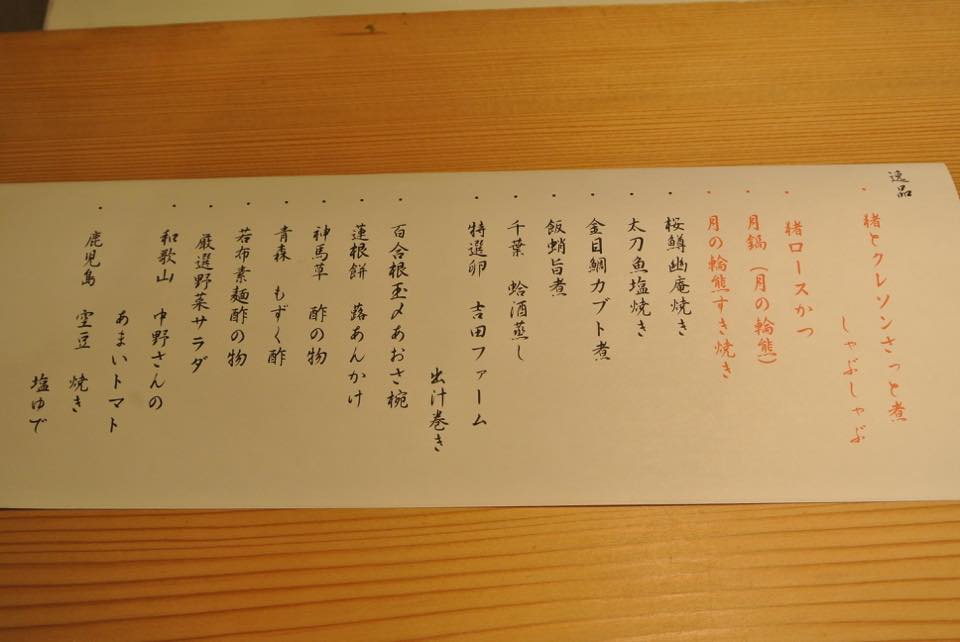 逸品
・猪とクレソンさっと煮
しゃぶしゃぶ
・猪ロースかつ
・月鍋(月の輪熊)
・月の輪熊すき焼き
・桜鱒幽庵焼き
・太刀魚塩焼き
・金目鯛カブト煮
・飯蛸旨煮
・千葉 蛤酒蒸し
・特選卵 吉田ファーム
出汁巻き
・百合根玉〆あおさ椀
・蓮根餅 蕗あんかけ
・神馬草 酢の物
・青森 もずく酢
・若布素麺酢の物
・厳選野菜サラダ
・和歌山 中野さんの
あまいトマト
・鹿児島 空豆 焼き
塩ゆで